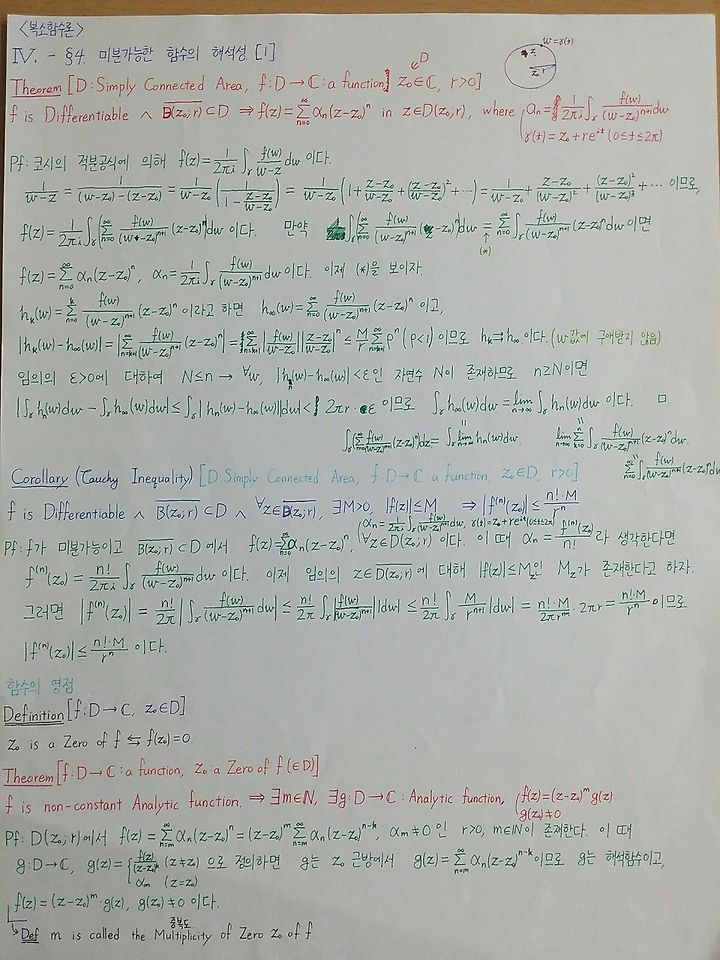 <복소함수론>
IV. - §4. 미분가능한 함수의 해석성 [1]
w=γ(t)
z
z₀ r
D
Theorem [D: Simply Connected Area, f: D→ℂ: a function, z₀∈ℂ, r>0]
f is Differentiable ∧ \overline{B(z₀;r)}⊂D ⇒ f(z)=∑_{n=0}^{∞} αₙ(z-z₀)ⁿ in z∈D(z₀;r), where { αₙ = \frac{1}{2πi}∫_γ \frac{f(w)}{(w-z₀)^{n+1}}dw
γ(t)=z₀+re^{it} (0≤t≤2π)
Pf: 코시의 적분공식에 의해 f(z)=\frac{1}{2πi}∫_γ \frac{f(w)}{w-z}dw 이다.
\frac{1}{w-z} = \frac{1}{(w-z₀)-(z-z₀)} = \frac{1}{w-z₀}(\frac{1}{1-\frac{z-z₀}{w-z₀}}) = \frac{1}{w-z₀}(1+\frac{z-z₀}{w-z₀}+\frac{(z-z₀)²}{(w-z₀)²}+⋯) = \frac{1}{w-z₀}+\frac{z-z₀}{(w-z₀)²}+\frac{(z-z₀)²}{(w-z₀)³}+⋯ 이므로,
f(z)=\frac{1}{2πi}∫_γ(∑_{n=0}^{∞} \frac{f(w)}{(w-z₀)^{n+1}}(z-z₀)ⁿ)dw 이다. 만약 ∫_γ(∑_{n=0}^{∞} \frac{f(w)}{(w-z₀)^{n+1}}(z-z₀)ⁿ)dw = ∑_{n=0}^{∞}∫_γ \frac{f(w)}{(w-z₀)^{n+1}}(z-z₀)ⁿdw 이면
(*)
f(z)=∑_{n=0}^{∞} αₙ(z-z₀)ⁿ, αₙ=\frac{1}{2πi}∫_γ \frac{f(w)}{(w-z₀)^{n+1}}dw 이다. 이제 (*)을 보이자.
h_k(w)=∑_{n=0}^{k} \frac{f(w)}{(w-z₀)^{n+1}}(z-z₀)ⁿ 이라고 하면 h_∞(w)=∑_{n=0}^{∞} \frac{f(w)}{(w-z₀)^{n+1}}(z-z₀)ⁿ 이고,
|h_k(w)-h_∞(w)|=|∑_{n=k+1}^{∞} \frac{f(w)}{(w-z₀)^{n+1}}(z-z₀)ⁿ|=∑_{n=k+1}^{∞}|\frac{f(w)}{w-z₀}||\frac{z-z₀}{w-z₀}|ⁿ ≤ \frac{M}{r}∑_{n=k+1}^{∞}ρⁿ (ρ<1) 이므로 h_k⇉h_∞ 이다. (w값에 구애받지 않음)
임의의 ε>0에 대하여 N≤n → ∀w, |hₙ(w)-h_∞(w)|<ε인 자연수 N이 존재하므로 n≥N이면
|∫_γ hₙ(w)dw - ∫_γ h_∞(w)dw| ≤ ∫_γ |hₙ(w)-h_∞(w)||dw| < 2πr·ε 이므로 ∫_γ h_∞(w)dw = lim_{n→∞}∫_γ hₙ(w)dw 이다. □
∫_γ(∑_{n=0}^{∞} \frac{f(w)}{(w-z₀)^{n+1}}(z-z₀)ⁿ)dz = ∫_γ lim_{n→∞} hₙ(w)dw. lim_{n→∞}∑_{k=0}^{n}∫_γ \frac{f(w)}{(w-z₀)^{n+1}}(z-z₀)ⁿdw.
∑_{n=0}^{∞}∫_γ \frac{f(w)}{(w-z₀)^{n+1}}(z-z₀)ⁿdw
Corollary (Cauchy Inequality) [D: Simply Connected Area, f: D→ℂ a function, z₀∈D, r>0]
f is Differentiable ∧ \overline{B(z₀;r)}⊂D ∧ ∀z∈\overline{B(z₀;r)}, ∃M>0, |f(z)|≤M ⇒ |f^{(n)}(z₀)| ≤ \frac{n!·M}{rⁿ}
αₙ=\frac{1}{2πi}∫_γ \frac{f(w)}{(w-z₀)^{n+1}}dw, γ(t)=z₀+re^{it} (0≤t≤2π)
Pf: f가 미분가능이고 \overline{B(z₀;r)}⊂D 에서 f(z)=∑_{n=0}^{∞} αₙ(z-z₀)ⁿ, (∀z∈D(z₀;r)) 이다. 이 때 αₙ=\frac{f^{(n)}(z₀)}{n!} 라 생각한다면
f^{(n)}(z₀)=\frac{n!}{2πi}∫_γ \frac{f(w)}{(w-z₀)^{n+1}}dw 이다. 이제 임의의 z∈\overline{D(z₀;r)}에 대해 |f(z)|≤M_z인 M_z가 존재한다고 하자.
그러면 |f^{(n)}(z₀)| = \frac{n!}{2π}|∫_γ \frac{f(w)}{(w-z₀)^{n+1}}dw| ≤ \frac{n!}{2π}∫_γ|\frac{f(w)}{(w-z₀)^{n+1}}||dw| ≤ \frac{n!}{2π}∫_γ \frac{M}{r^{n+1}}|dw| = \frac{n!·M}{2πr^{n+1}}·2πr = \frac{n!·M}{rⁿ} 이므로
|f^{(n)}(z₀)| ≤ \frac{n!·M}{rⁿ} 이다.
함수의 영점
Definition [f: D→ℂ, z₀∈D]
z₀ is a Zero of f ⇆ f(z₀)=0
Theorem [f: D→ℂ: a function, z₀: a Zero of f (∈D)]
f is non-constant Analytic function. ⇒ ∃m∈ℕ, ∃g: D→ℂ: Analytic function, { f(z)=(z-z₀)^m g(z)
g(z₀)≠0
Pf: D(z₀;r)에서 f(z)=∑_{n=m}^{∞} αₙ(z-z₀)ⁿ=(z-z₀)^m∑_{n=m}^{∞} αₙ(z-z₀)^{n-k}, α_m≠0 인 r>0, m∈ℕ이 존재한다. 이 때
g: D→ℂ, g(z)={ \frac{f(z)}{(z-z₀)^k} (z≠z₀) 으로 정의하면 g는 z₀ 근방에서 g(z)=∑_{n=m}^{∞} αₙ(z-z₀)^{n-k}이므로 g는 해석함수이고,
α_m (z=z₀)
f(z)=(z-z₀)^m·g(z), g(z₀)≠0 이다.
중복도
↳ Def m is called the Multiplicity of Zero z₀ of f